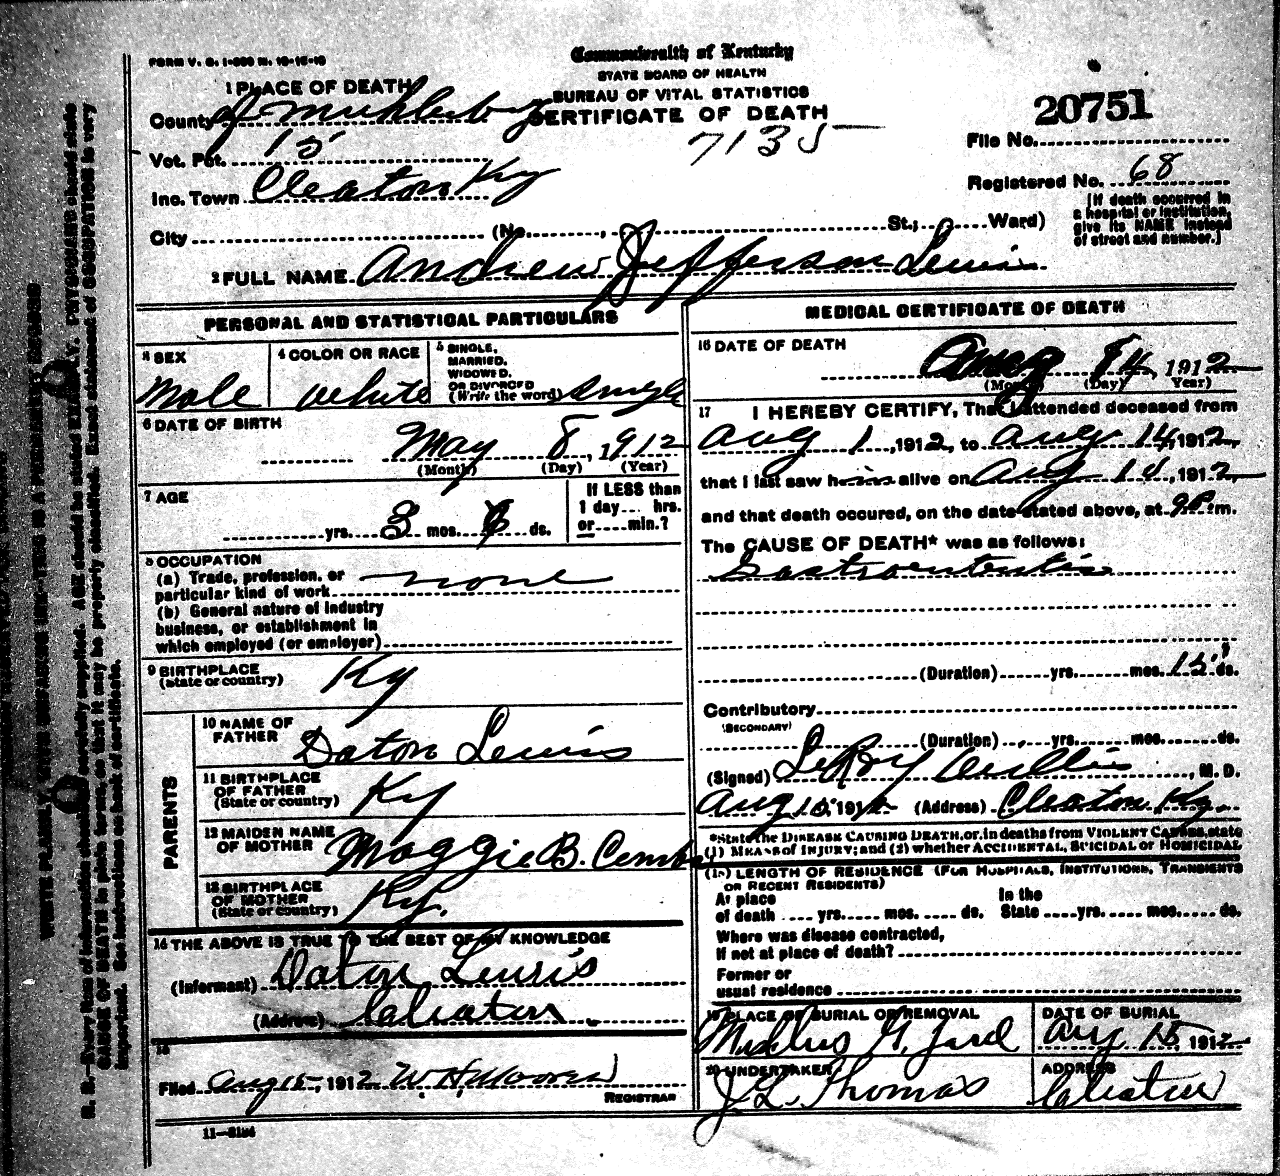 FORM V. S. 1-
Commonwealth of Kentucky
STATE BOARD OF HEALTH
BUREAU OF VITAL STATISTICS
CERTIFICATE OF DEATH
1 PLACE OF DEATH
County of Muhlenberg
Vot. Pct. 15
7135
Inc. Town Cleaton Ky
City (No. , St.; Ward)
20751
File No.
Registered No. 68
[If death occurred in
a hospital or institution,
give its NAME instead
of street and number.]
2 FULL NAME Andrew Jefferson Lewis
PERSONAL AND STATISTICAL PARTICULARS
3 SEX
Male
4 COLOR OR RACE
white
5 SINGLE,
MARRIED,
WIDOWED,
OR DIVORCED
(Write the word) single
6 DATE OF BIRTH
May 8, 1912
(Month) (Day) (Year)
7 AGE
yrs. 3 mos. 6 ds.
If LESS than
1 day... hrs.
or....min.?
8 OCCUPATION
(a) Trade, profession, or
particular kind of work none
(b) General nature of industry
business, or establishment in
which employed (or employer)
9 BIRTHPLACE
(State or country) Ky
PARENTS
10 NAME OF
FATHER Daton Lewis
11 BIRTHPLACE
OF FATHER
(State or country) Ky
12 MAIDEN NAME
OF MOTHER Maggie B. Combs
13 BIRTHPLACE
OF MOTHER
(State or country) Ky.
14 THE ABOVE IS TRUE TO THE BEST OF MY KNOWLEDGE
(Informant) Daton Lewis
(Address) Cleaton
15
Filed Aug 15, 1912 W H Moore
REGISTRAR
11-
MEDICAL CERTIFICATE OF DEATH
16 DATE OF DEATH
Aug 14, 1912
(Month) (Day) Year)
17 I HEREBY CERTIFY, That I attended deceased from
Aug 1, 1912, to Aug 14, 1912,
that I last saw him alive on Aug 14, 1912
and that death occured, on the date stated above, at 9P.m.
The CAUSE OF DEATH* was as follows:
Gastroenteritis
(Duration) yrs. mos. 15 ds.
Contributory
(SECONDARY)
(Duration) yrs. mos. ds.
(Signed) LeRoy Willis, M. D.
Aug 15 1912 (Address) Cleaton Ky.
*State the DISEASE CAUSING DEATH, or, in deaths from VIOLENT CAUSES, state
(1) MEANS of INJURY; and (2) whether ACCIDENTAL, SUICIDAL or HOMICIDAL
LENGTH OF RESIDENCE (FOR HOSPITALS, INSTITUTIONS, TRANSIENTS
OR RECENT RESIDENTS)
At place
of death .... yrs. mos. ds.
In the
State yrs. mos. ds.
Where was disease contracted,
If not at place of death?
Former or
usual residence
19 PLACE OF BURIAL OR REMOVAL
G. Yard
DATE OF BURIAL
Aug 15, 1912
20 UNDERTAKER
J L Thomas
ADDRESS
Cleaton
WRITE PLAINLY, WITH UNFADING INK—THIS IS A PERMANENT RECORD
N. B.—Every item of information should be carefully supplied. AGE should be stated EXACTLY. PHYSICIANS should state
CAUSE OF DEATH in plain terms, so that it may be properly classified. Exact statement of OCCUPATION is very
important. See instructions on back of certificate.